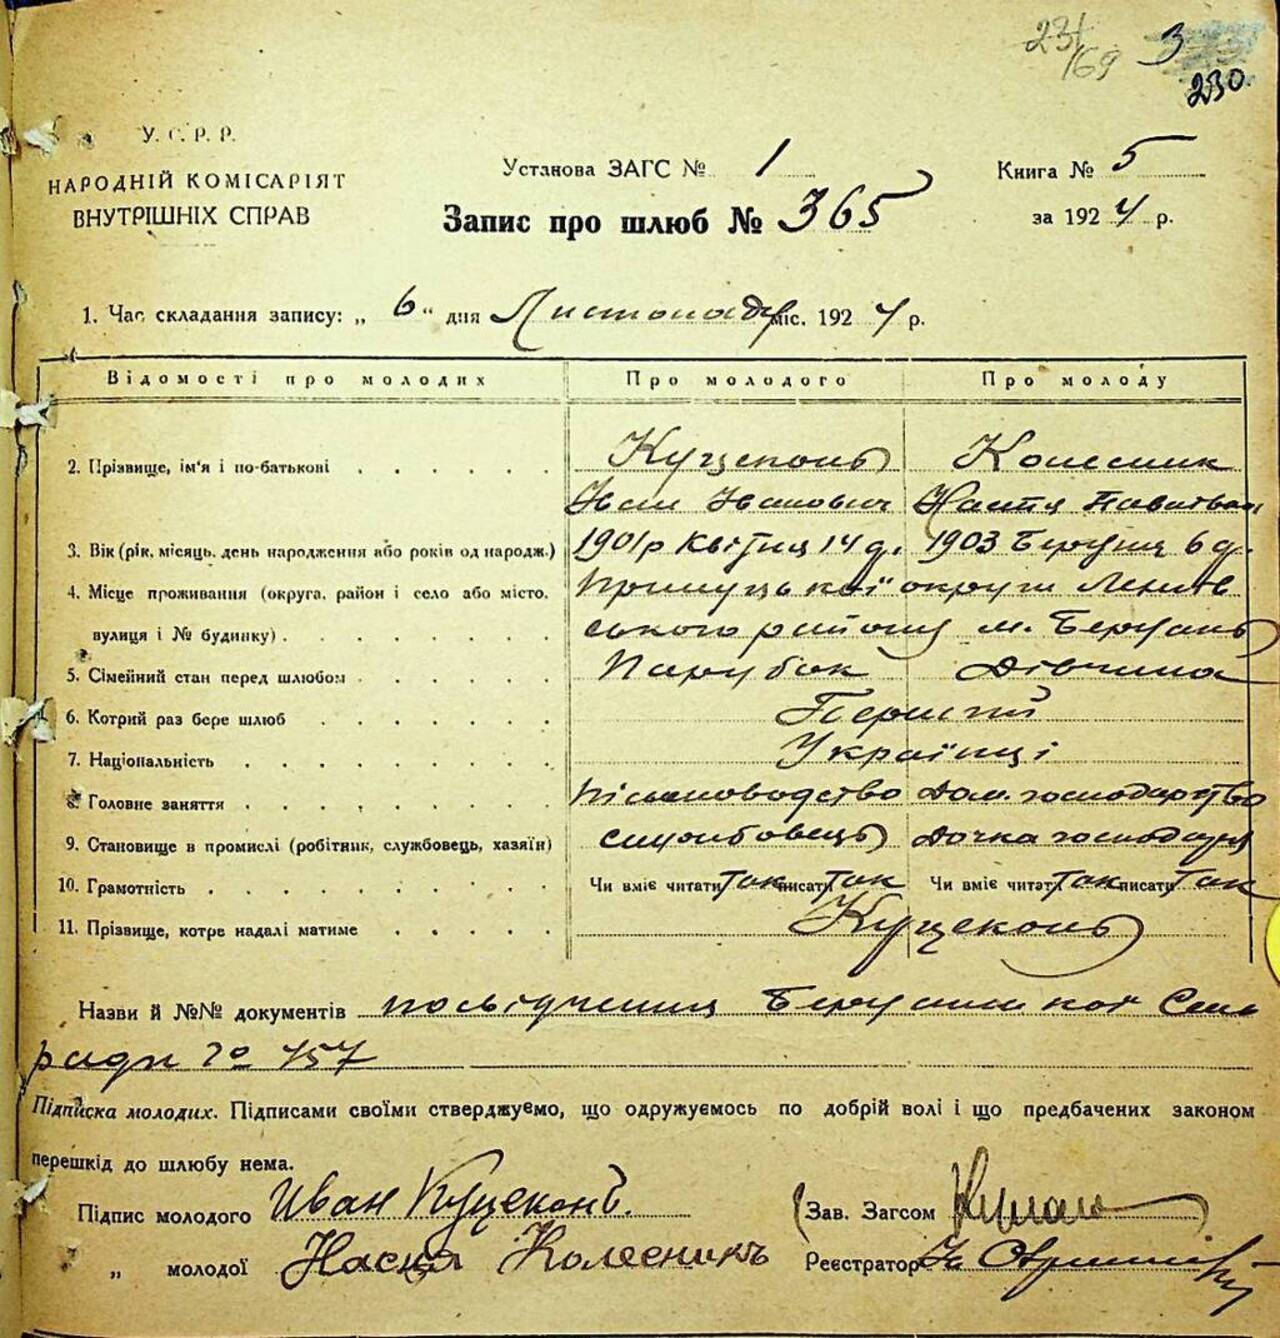 231
169
3
230.
У. С. Р. Р.
НАРОДНІЙ КОМІСАРІЯТ
ВНУТРІШНІХ СПРАВ
Установа ЗАГС № 1
Запис про шлюб № 365
Книга № 5
за 1924 р.
1. Час складання запису: „ 6 " дня Листопаду міс. 1924 р.
Відомості про молодих Про молодого Про молоду
2. Прізвище, ім'я і по-батькові Куцеконь Колесник
Іван Іванович Настя
3. Вік (рік, місяць, день народження або років од народж.) 1901 р Квітня 14 д. 1903 Березня 6 д.
4. Місце проживання (округа, район і село або місто, Прилуцької округи
вулиця і № будинку) ського району м. Березань
5. Сімейний стан перед шлюбом Парубок Дівчина
6. Котрий раз бере шлюб Перший
7. Національність Українці
8. Головне заняття Письмоводство Дом. господарство
9. Становище в промислі (робітник, службовець, хазяїн) службовець Дочка господаря
10. Грамотність Чи вміє читати так писати так Чи вміє читати так писати так
11. Прізвище, котре надалі матиме Куцеконь
Назви й №№ документів посвідчення Сель
ради № 757
Підписка молодих. Підписами своїми стверджуємо, що одружуємось по добрій волі і що предбачених законом
перешкід до шлюбу нема.
Підпис молодого Иван Куцеконь.
Зав. Загсом
„ молодої Наска Колесникъ
Реєстратор